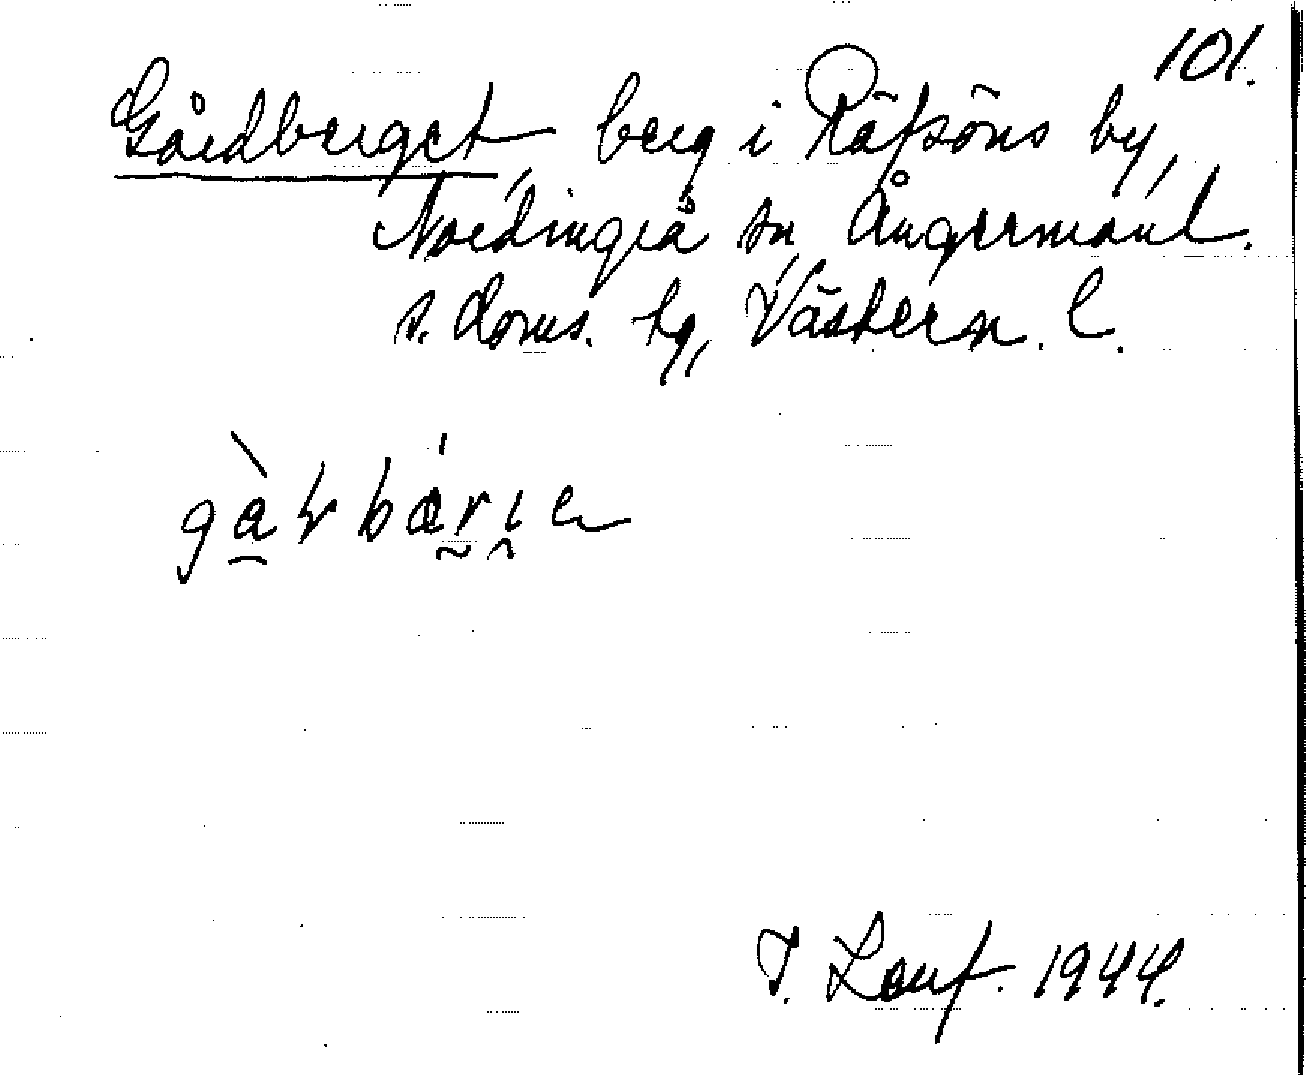 101.
Gårdberget, berg i Räfsöns by,
Nordingrå sn, Ångermanl.
s. doms. tg, Västern. l.
T. Lauf. 1944.